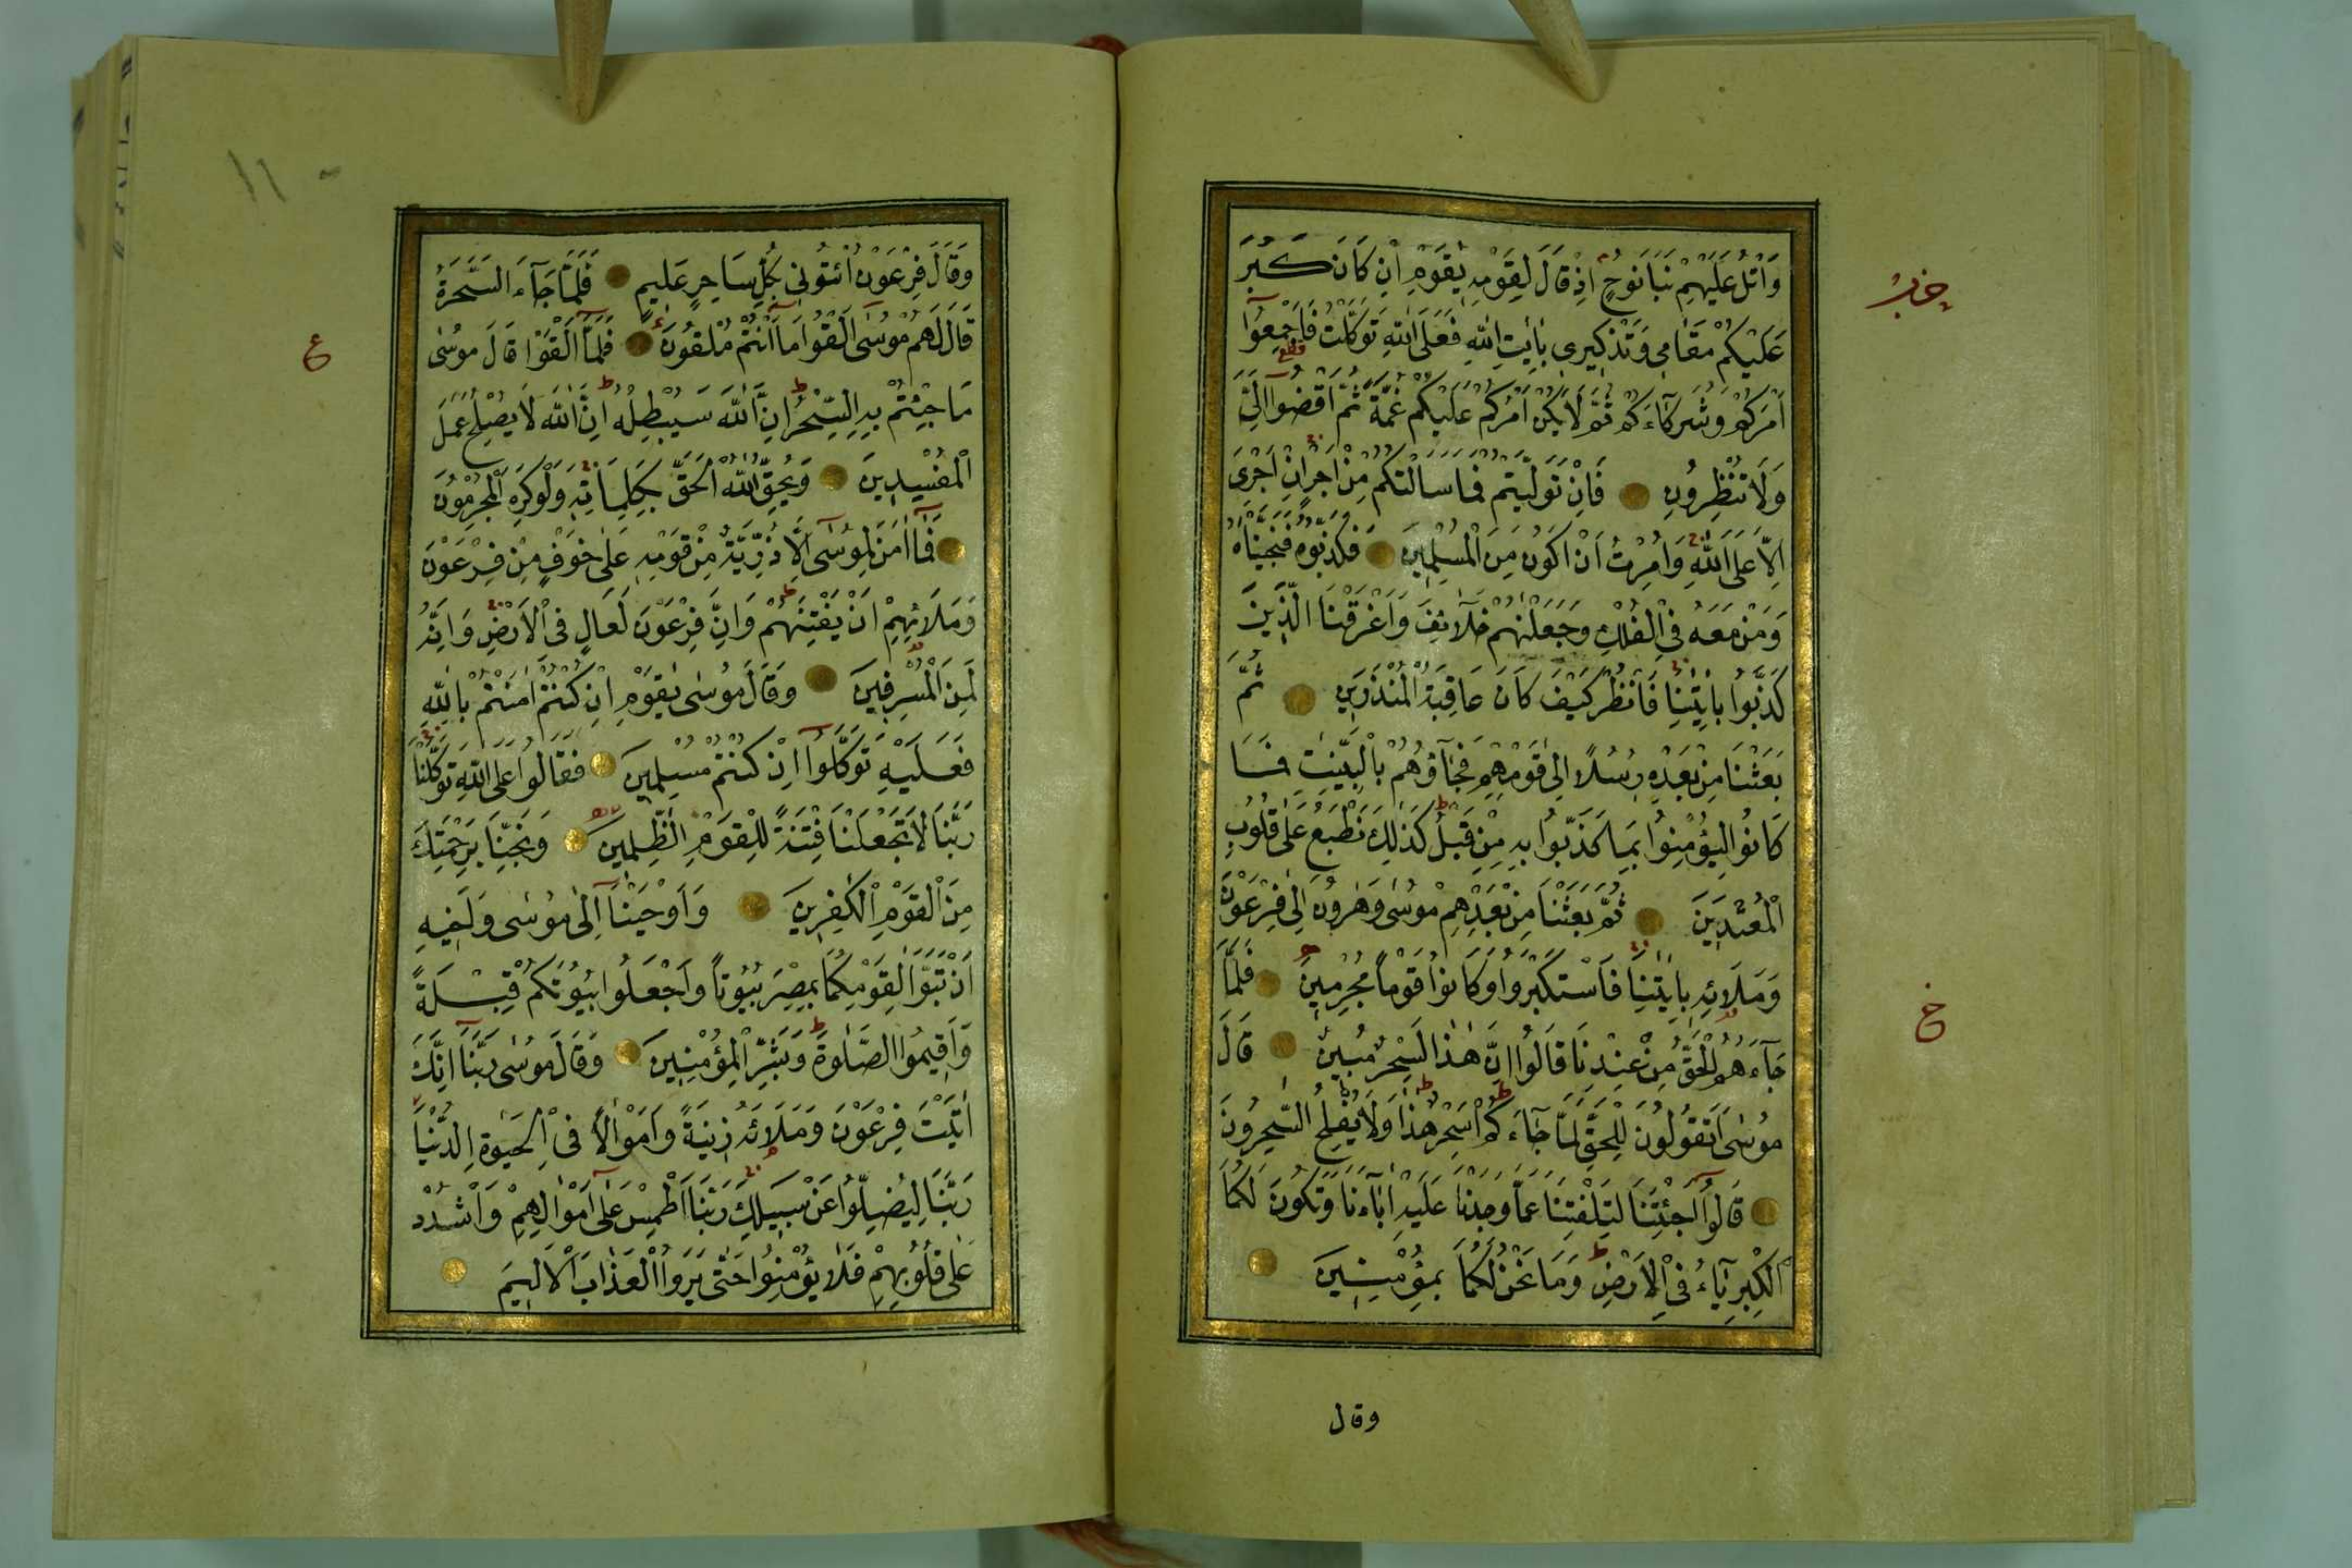 وَاتْلُ عَلَيْهِمْ نَبَاَ نُوحٍ اِذْ قَالَ لِقَوْمِهٖ يٰقَوْمِ اِنْ كَانَ كَبُرَ
عَلَيْكُمْ مَقَامٖى وَتَذْكٖيرٖى بِاٰيٰتِ اللّٰهِ فَعَلَى اللّٰهِ تَوَكَّلْتُ فَاَجْمِعُٓوا
اَمْرَكُمْ وَشُرَكَٓاءَكُمْ ثُمَّ لَا يَكُنْ اَمْرُكُمْ عَلَيْكُمْ غُمَّةً ثُمَّ اقْضُٓوا اِلَىَّ
وَلَا تُنْظِرُونِ فَاِنْ تَوَلَّيْتُمْ فَمَا سَاَلْتُكُمْ مِنْ اَجْرٍ اِنْ اَجْرِىَ
اِلَّا عَلَى اللّٰهِ وَاُمِرْتُ اَنْ اَكُونَ مِنَ الْمُسْلِمٖينَ فَكَذَّبُوهُ فَنَجَّيْنَاهُ
وَمَنْ مَعَهُ فِى الْفُلْكِ وَجَعَلْنٰهُمْ خَلَٓائِفَ وَاَغْرَقْنَا الَّذٖينَ
كَذَّبُوا بِاٰيٰتِنَا فَانْظُرْ كَيْفَ كَانَ عَاقِبَةُ الْمُنْذَرٖينَ ثُمَّ
بَعَثْنَا مِنْ بَعْدِهٖ رُسُلًا اِلٰى قَوْمِهِمْ فَجَٓاؤُهُمْ بِالْبَيِّنٰتِ فَمَا
كَانُوا لِيُؤْمِنُوا بِمَا كَذَّبُوا بِهٖ مِنْ قَبْلُ كَذٰلِكَ نَطْبَعُ عَلٰى قُلُوبِ
الْمُعْتَدٖينَ ثُمَّ بَعَثْنَا مِنْ بَعْدِهِمْ مُوسٰى وَهٰرُونَ اِلٰى فِرْعَوْنَ
وَمَلَائِهٖ بِاٰيٰتِنَا فَاسْتَكْبَرُوا وَكَانُوا قَوْماً مُجْرِمٖينَ فَلَمَّا
جَٓاءَهُمُ الْحَقُّ مِنْ عِنْدِنَا قَالُٓوا اِنَّ هٰذَا لَسِحْرٌ مُبٖينٌ قَالَ
مُوسٰٓى اَتَقُولُونَ لِلْحَقِّ لَمَّا جَٓاءَكُمْ اَسِحْرٌ هٰذَا وَلَا يُفْلِحُ السّٰحِرُونَ
قَالُٓوا اَجِئْتَنَا لِتَلْفِتَنَا عَمَّا وَجَدْنَا عَلَيْهِ اٰبَٓاءَنَا وَتَكُونَ لَكُمَا
الْكِبْرِيَٓاءُ فِى الْاَرْضِ وَمَا نَحْنُ لَكُمَا بِمُؤْمِنٖينَ
وقال
وَقَالَ فِرْعَوْنُ ائْتُونٖى بِكُلِّ سَاحِرٍ عَلٖيمٍ فَلَمَّا جَٓاءَ السَّحَرَةُ
قَالَ لَهُمْ مُوسٰٓى اَلْقُوا مَٓا اَنْتُمْ مُلْقُونَ فَلَمَّٓا اَلْقَوْا قَالَ مُوسٰى
مَا جِئْتُمْ بِهِ السِّحْرُ اِنَّ اللّٰهَ سَيُبْطِلُهُ اِنَّ اللّٰهَ لَا يُصْلِحُ عَمَلَ
الْمُفْسِدٖينَ وَيُحِقُّ اللّٰهُ الْحَقَّ بِكَلِمَاتِهٖ وَلَوْ كَرِهَ الْمُجْرِمُونَ
فَمَٓا اٰمَنَ لِمُوسٰٓى اِلَّا ذُرِّيَّةٌ مِنْ قَوْمِهٖ عَلٰى خَوْفٍ مِنْ فِرْعَوْنَ
وَمَلَائِهِمْ اَنْ يَفْتِنَهُمْ وَاِنَّ فِرْعَوْنَ لَعَالٍ فِى الْاَرْضِ وَاِنَّهُ
لَمِنَ الْمُسْرِفٖينَ وَقَالَ مُوسٰى يٰقَوْمِ اِنْ كُنْتُمْ اٰمَنْتُمْ بِاللّٰهِ
فَعَلَيْهِ تَوَكَّلُٓوا اِنْ كُنْتُمْ مُسْلِمٖينَ فَقَالُوا عَلَى اللّٰهِ تَوَكَّلْنَا
رَبَّنَا لَا تَجْعَلْنَا فِتْنَةً لِلْقَوْمِ الظّٰلِمٖينَ وَنَجِّنَا بِرَحْمَتِكَ
مِنَ الْقَوْمِ الْكٰفِرٖينَ وَاَوْحَيْنَٓا اِلٰى مُوسٰى وَاَخٖيهِ
اَنْ تَبَوَّاٰ لِقَوْمِكُمَا بِمِصْرَ بُيُوتاً وَاجْعَلُوا بُيُوتَكُمْ قِبْلَةً
وَاَقٖيمُوا الصَّلٰوةَ وَبَشِّرِ الْمُؤْمِنٖينَ وَقَالَ مُوسٰى رَبَّنَٓا اِنَّكَ
اٰتَيْتَ فِرْعَوْنَ وَمَلَاَئَهُ زٖينَةً وَاَمْوَالًا فِى الْحَيٰوةِ الدُّنْيَا
رَبَّنَا لِيُضِلُّوا عَنْ سَبٖيلِكَ رَبَّنَا اطْمِسْ عَلٰٓى اَمْوَالِهِمْ وَاشْدُدْ
عَلٰى قُلُوبِهِمْ فَلَا يُؤْمِنُوا حَتّٰى يَرَوُا الْعَذَابَ الْاَلٖيمَ